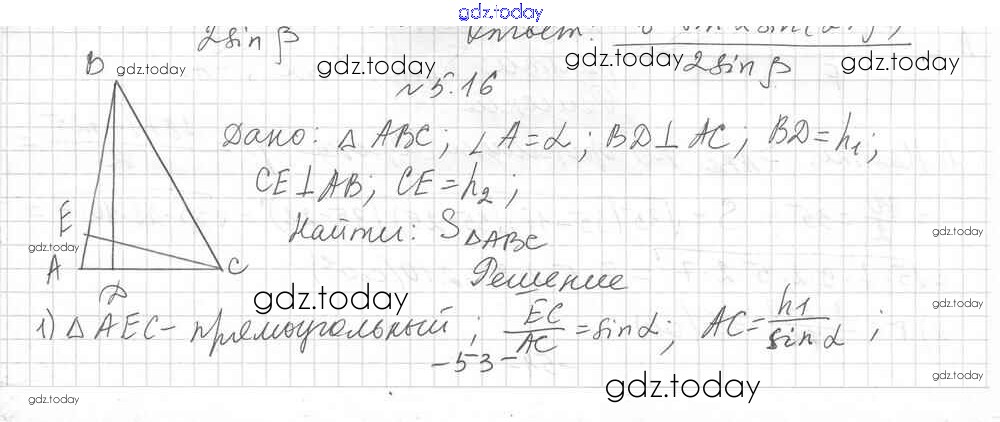 gdz.today
2sin β
Ответ:
2sin β
gdz.today
gdz.today
gdz.today
gdz.today
№ 5.16
B
Дано: △ ABC; ∠A=α; BD⊥AC; BD=h₁;
CE⊥AB; CE=h₂;
gdz.today
E
Найти: S△ABC
gdz.today
A
C
gdz.today
Решение
D
gdz.today
gdz.today
1) △ AEC - прямоугольный; EC/AC = sin α; AC = h1/sin α;
-53-
gdz.today
gdz.today
gdz.today